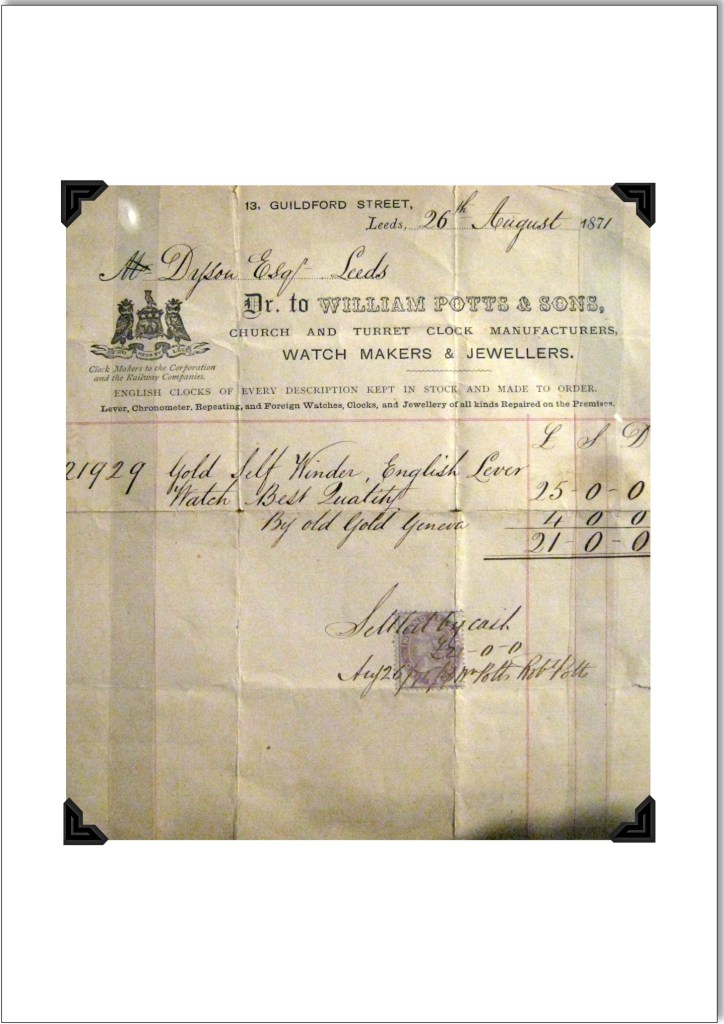 13, GUILDFORD STREET,
Leeds, 26th August 1871
Mr Dyson Esqr Leeds
Dr. to WILLIAM POTTS & SONS,
CHURCH AND TURRET CLOCK MANUFACTURERS,
WATCH MAKERS & JEWELLERS.
Clock Makers to the Corporation
and the Railway Companies.
ENGLISH CLOCKS OF EVERY DESCRIPTION KEPT IN STOCK AND MADE TO ORDER.
Lever, Chronometer, Repeating, and Foreign Watches, Clocks, and Jewellery of all kinds Repaired on the Premises.
L S D
21929 Gold Self Winder, English Lever
Watch Best Quality 25-0-0
By old Gold Geneva 4 0 0
21-0-0
Settled by cash
-0-0
Aug 26 Wm Potts Robt Potts